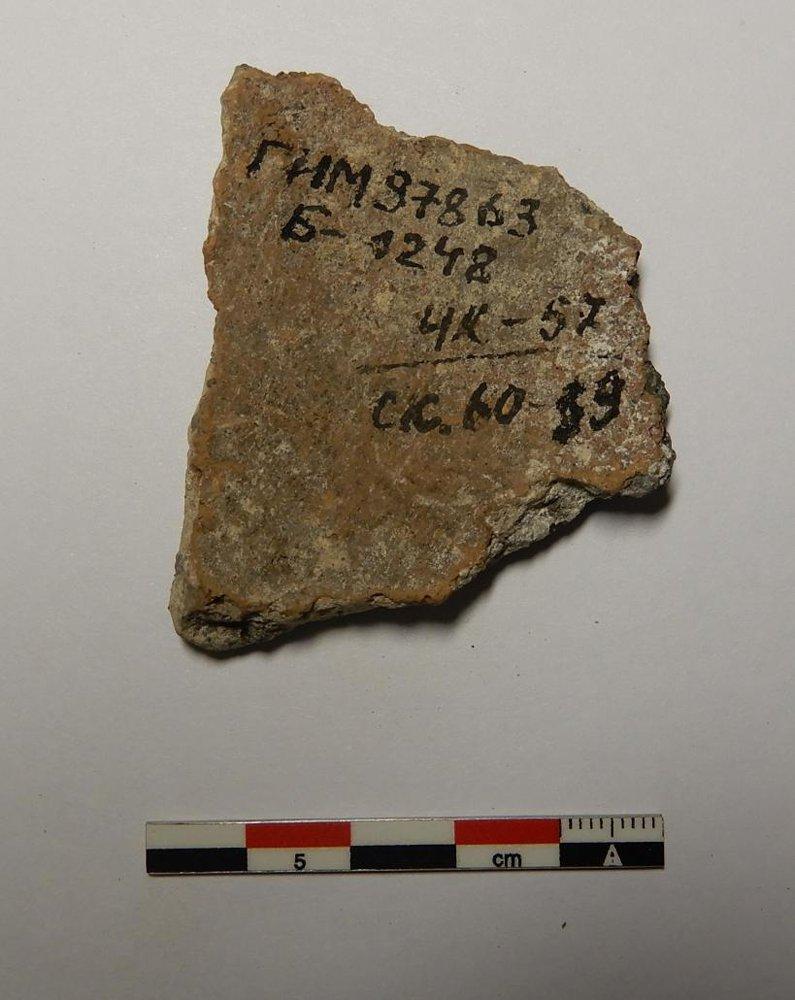 ГИМ 97863
Б-1248
ЧК-57
СК. 60-
5 cm